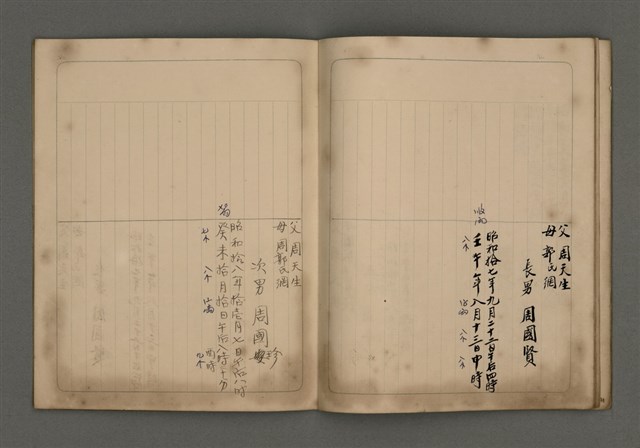 父 周天生
母 郭氏凋
長男 周國賢
昭和拾七年九月二十二日午后四時
壬午年八月十三日申時
父 周天生
母 周郭氏凋
次男 周國珍
昭和拾八年拾壹月七日午后八時十分
癸未拾月拾日午后八時